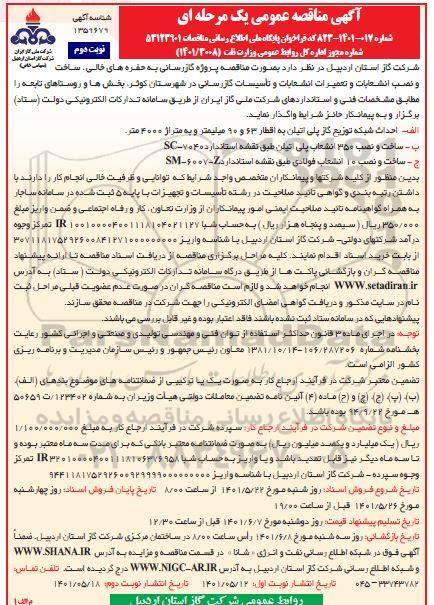 آگهی مناقصه عمومی یک مرحله ای
شماره ۰۱۷-۱۴۰۱-۸۴۳ کد فراخوان پایگاه ملی اطلاع رسانی مناقصات ۵۳۱۴۳۹۰۱
شماره مجوز اداره کل روابط عمومی وزارت نفت (۱۴۰۱/۳۰۰۸)
شناسه آگهی
۱۳۵۹۶۷۹
نوبت دوم
شرکت ملی گاز ایران
شرکت گاز استان اردبیل
(سهامی خاص)
شرکت گاز استان اردبیل در نظر دارد بصورت مناقصه پروژه گازرسانی به حفره های خالی ، ساخت
و نصب انشعابات و تعمیرات انشعابات و تأسیسات گازرسانی در شهرستان کوثر، بخش ها و روستاهای تابعه را
مطابق مشخصات فنی و استانداردهای شرکت ملی گاز ایران از طریق سامانه تدارکات الکترونیکی دولت (ستاد)
برگزار و به پیمانکار حائز شرایط واگذار نماید.
الف- احداث شبکه توزیع گاز پلی اتیلن به اقطار ۶۳ و ۹۰ میلیمتر و به متراژ ۴۰۰۰ متر.
ب - ساخت و نصب ۳۵۰ انشعاب پلی اتیلن طبق نقشه استاندارد SC-۷۰۴۰
ج - ساخت و نصب ۱۰ انشعاب فولادی طبق نقشه استاندارد SM-۶۰۰۷-Z
بدین منظور از کلیه شرکتها و پیمانکاران متخصص واجد شرایط که توانایی و ظرفیت خالی انجام کار را دارند با
داشتن رتبه بندی و گواهی تائید صلاحیت در رشته تأسیسات و تجهیزات با پایه ۵ ثبت شده در سامانه ساجار
به همراه گواهینامه تائید صلاحیت ایمنی امور پیمانکاران از وزارت تعاون، کار و رفاه اجتماعی و ضمن واریز مبلغ
۳۵۰/۰۰۰ ریال (سیصد و پنجاه هزار ریال) به حساب شبا IR تمرکز وجوه
درآمد شرکتهای دولتی- شرکت گاز استان اردبیل با شناسه واریز
از بابت خرید اسناد اقدام نمایند. کلیه مراحل برگزاری مناقصه از دریافت اسناد مناقصه تا ارائه پیشنهاد
مناقصه گران و بازگشائی پاکت ها از طریق درگاه سامانه تدارکات الکترونیکی دولت ( ستاد) به آدرس
WWW.setadiran.ir انجام خواهد شد و لازم است مناقصه گران در صورت عدم عضویت قبلی مراحل ثبت
نام در سایت مذکور و دریافت گواهی امضای الکترونیکی را جهت شرکت در مناقصه محقق سازند.
پیشنهادهایی که در سامانه ستاد ثبت نشده باشند فاقد اعتبار بوده و غیر قابل بررسی می باشند.
توجه: در اجرای ماده ۳ قانون حداکثر استفاده از توان فنی و مهندسی تولیدی و صنعتی و اجرائی کشور رعایت
بخشنامه شماره ۱۰۶/۲۸۷۲۰۶-۱۳۸۱/۱۰/۱۴ معاون رئیس جمهور و رئیس سازمان مدیریت و برنامه ریزی
کشور الزامی است.
تضمین معتبر شرکت در فرآیند ارجاع کار به صورت یک یا ترکیبی از ضمانتنامه های موضوع بندهای (الف)،
(ب)، (پ)، (ج)، (چ) و (ح) ماده (۴) آئین نامه تضمین معاملات دولتی هیأت وزیران به شماره ۱۲۳۴۰۲/ت ۵۰۶۵۹
هـ مورخ ۹۴/۹/۲۲ بوده باشد.
مبلغ و نوع تضمین شرکت در فرآیند ارجاع کار: سپرده شرکت در فرآیند ارجاع کار به مبلغ ۱/۱۰۰/۰۰۰/۰۰۰
ریال (یک میلیارد و یکصد میلیون ریال) به صورت ضمانتنامه معتبر بانکی که برای مدت سه ماه معتبر بوده و
تا سه ماه دیگر نیز قابل تمدید باشد و یا واریز به حساب شبا IR تمرکز
وجوه سپرده - شرکت گاز استان اردبیل با شناسه واریز
تاریخ شروع فروش اسناد: روز شنبه مورخ ۱۴۰۱/۵/۲۲ از ساعت ۸/۰۰ تاریخ پایان فروش اسناد: روز چهارشنبه
مورخ ۱۴۰۱/۵/۲۶ قبل از ساعت ۱۹/۰۰
تاریخ تسلیم پیشنهاد قیمت: روز دوشنبه مورخ ۱۴۰۱/۶/۷ قبل از ساعت ۱۲/۳۰
تاریخ بازگشائی: روز سه شنبه مورخ ۱۴۰۱/۶/۸ رأس ساعت ۸/۰۰ در ساختمان مرکزی شرکت گاز استان اردبیل. ضمناً
آگهی فوق در شبکه اطلاع رسانی نفت و انرژی « شانا » در قسمت مناقصه و مزایده به آدرس WWW.SHANA.IR
و شبکه اطلاع رسانی به آدرس WWW.NIGC-AR.IR درج گردیده است. تلفن تماس:
۰۴۵-۳۳۷۴۳۷۸۲ تاریخ انتشار نوبت اول: ۱۴۰۱/۰۵/۱۲ تاریخ انتشار نوبت دوم: ۱۴۰۱/۰۵/۱۸
روابط عمومی شرکت گاز استان اردبیل
م الف ۱